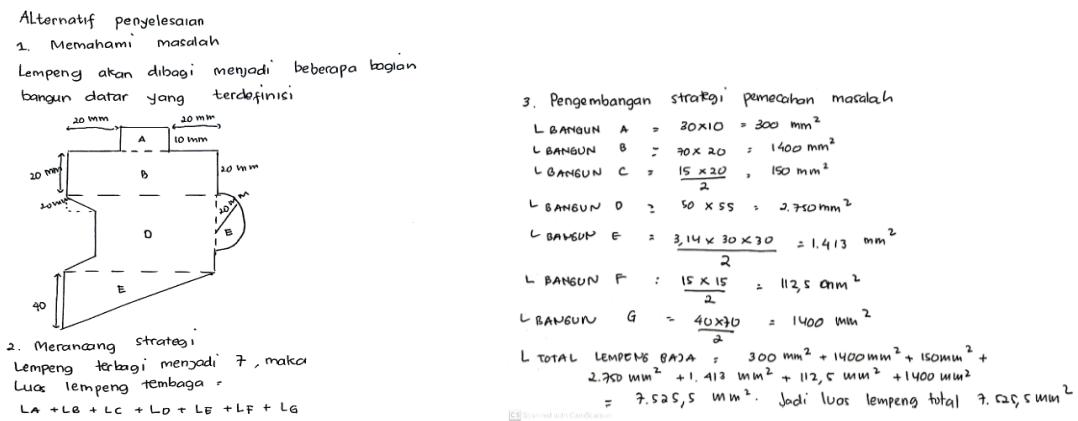 Alternatif penyelesaian
1. Memahami masalah
Lempeng akan dibagi menjadi beberapa bagian
bangun datar yang terdefinisi
20 mm
20 mm
A
10 mm
20 mm
B
20 mm
20 mm
20 mm
D
E
E
40
2. Merancang strategi
Lempeng terbagi menjadi 7, maka
Luas lempeng tembaga =
LA + LB + LC + LD + LE + LF + LG
3. Pengembangan strategi pemecahan masalah
L BANGUN A = 30x10 = 300 mm²
L BANGUN B = 70 x 20 = 1400 mm²
L BANGUN C = 15 x 20 / 2 = 150 mm²
L BANGUN D = 50 x 55 = 2.750 mm²
L BANGUN E = 3,14 x 30 x 30 / 2 = 1.413 mm²
L BANGUN F = 15 x 15 / 2 = 112,5 mm²
L BANGUN G = 40x70 / 2 = 1400 mm²
L TOTAL LEMPENG BAJA = 300 mm² + 1400 mm² + 150mm² +
2.750 mm² + 1.413 mm² + 112,5 mm² + 1400 mm²
= 7.525,5 mm². Jadi luas lempeng total 7.525,5 mm²
CS Scanned with CamScanner